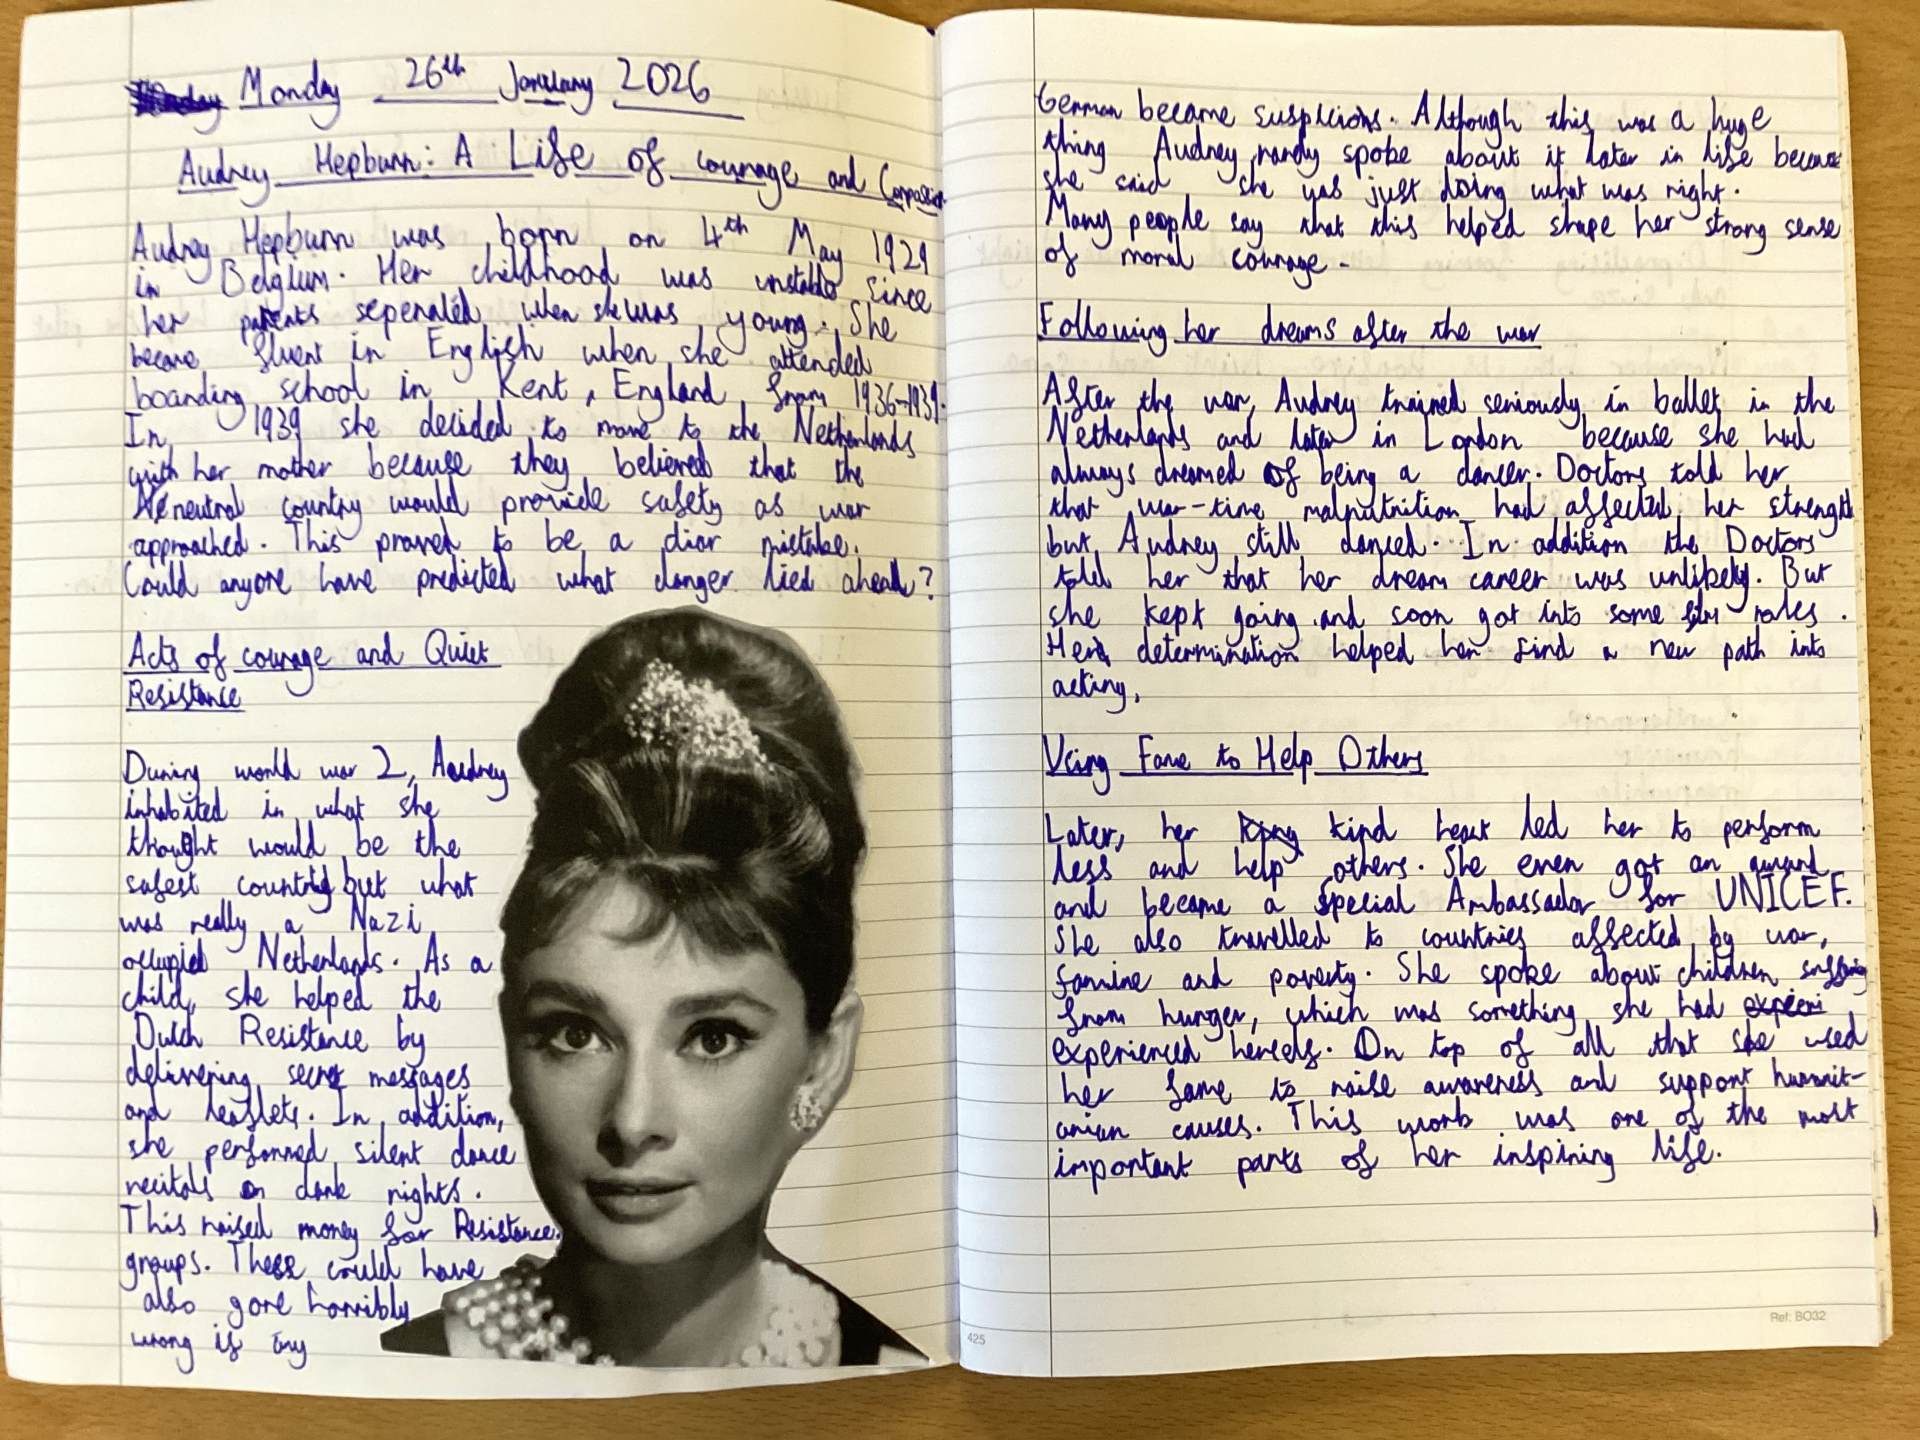 Monday 26th January 2026
Audrey Hepburn: A Life of courage and Compassion
Audrey Hepburn was born on 4th May 1929
in Belgium. Her childhood was unstable since
her parents seperated when she was young. She
became fluent in English when she attended
boarding school in Kent, England from 1936-1939.
In 1939 she decided to move to the Netherlands
with her mother because they believed that the
neutral country would provide safety as war
approached. This proved to be a diar mistake.
Could anyone have predicted what danger lied ahead?
Acts of courage and Quiet
Resistance
During world war 2, Audrey
inhabited in what she
thought would be the
safest country but what
was really a Nazi
occupied Netherlands. As a
child, she helped the
Dutch Resistance by
delivering secret messages
and leaflets. In addition,
she performed silent dance
recitals on dark nights.
This raised money for Resistance
groups. These could have
also gone horribly
wrong if any
German became suspicions. Although this was a huge
thing Audrey rardy spoke about it later in life because
she said she was just doing what was right.
Many people say that this helped shape her strong sense
of moral courage.
Following her dreams after the war
After the war, Audrey trained seriously in ballet in the
Netherlands and later in London because she had
always dreamed of being a dancer. Doctors told her
that war-time malnutrition had affected her strength
but Audrey still danced. In addition the Doctors
told her that her dream career was unlikely. But
she kept going and soon got into some film roles.
Her determination helped her find a new path into
acting.
Using Fame to Help Others
Later, her kind heart led her to perform
less and help others. She even got an award
and became a special Ambassador for UNICEF.
She also travelled to countries affected by war,
famine and poverty. She spoke about children suffering
from hunger, which was something she had experi
experienced herself. On top of all that she used
her fame to raise awareness and support humanit-
arian causes. This work was one of the most
important parts of her inspiring life.
425
Ref: BO32